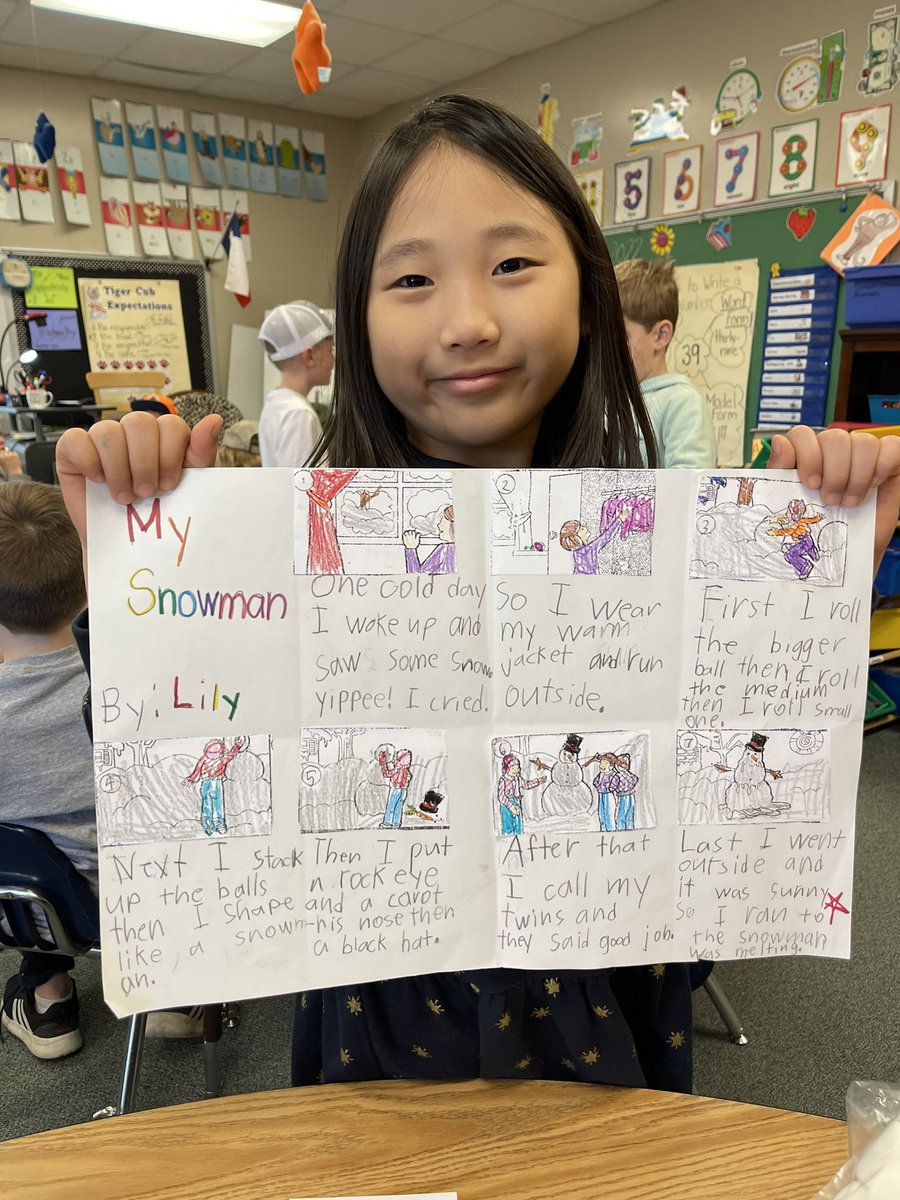 Tiger Cub
Expectations
5
6
7
8
9
to Write a
Number
Word
form
39
thirty-
nine
Model
Form
My
Snowman
By: Lily
1
One cold day
I woke up and
saw some snow.
yippee! I cried.
2
So I wear
my warm
jacket and run
outside.
3
First I roll
the bigger
ball then I roll
the medium
then I roll small
one.
4
Next I stack
up the balls
then I shape
like a snowm-
an.
5
Then I put
n rock eye
and a carot
his nose then
a black hat.
After that
I call my
twins and
they said good job.
7
Last I went
outside and
it was sunny
so I ran to
the snowman
was melting.